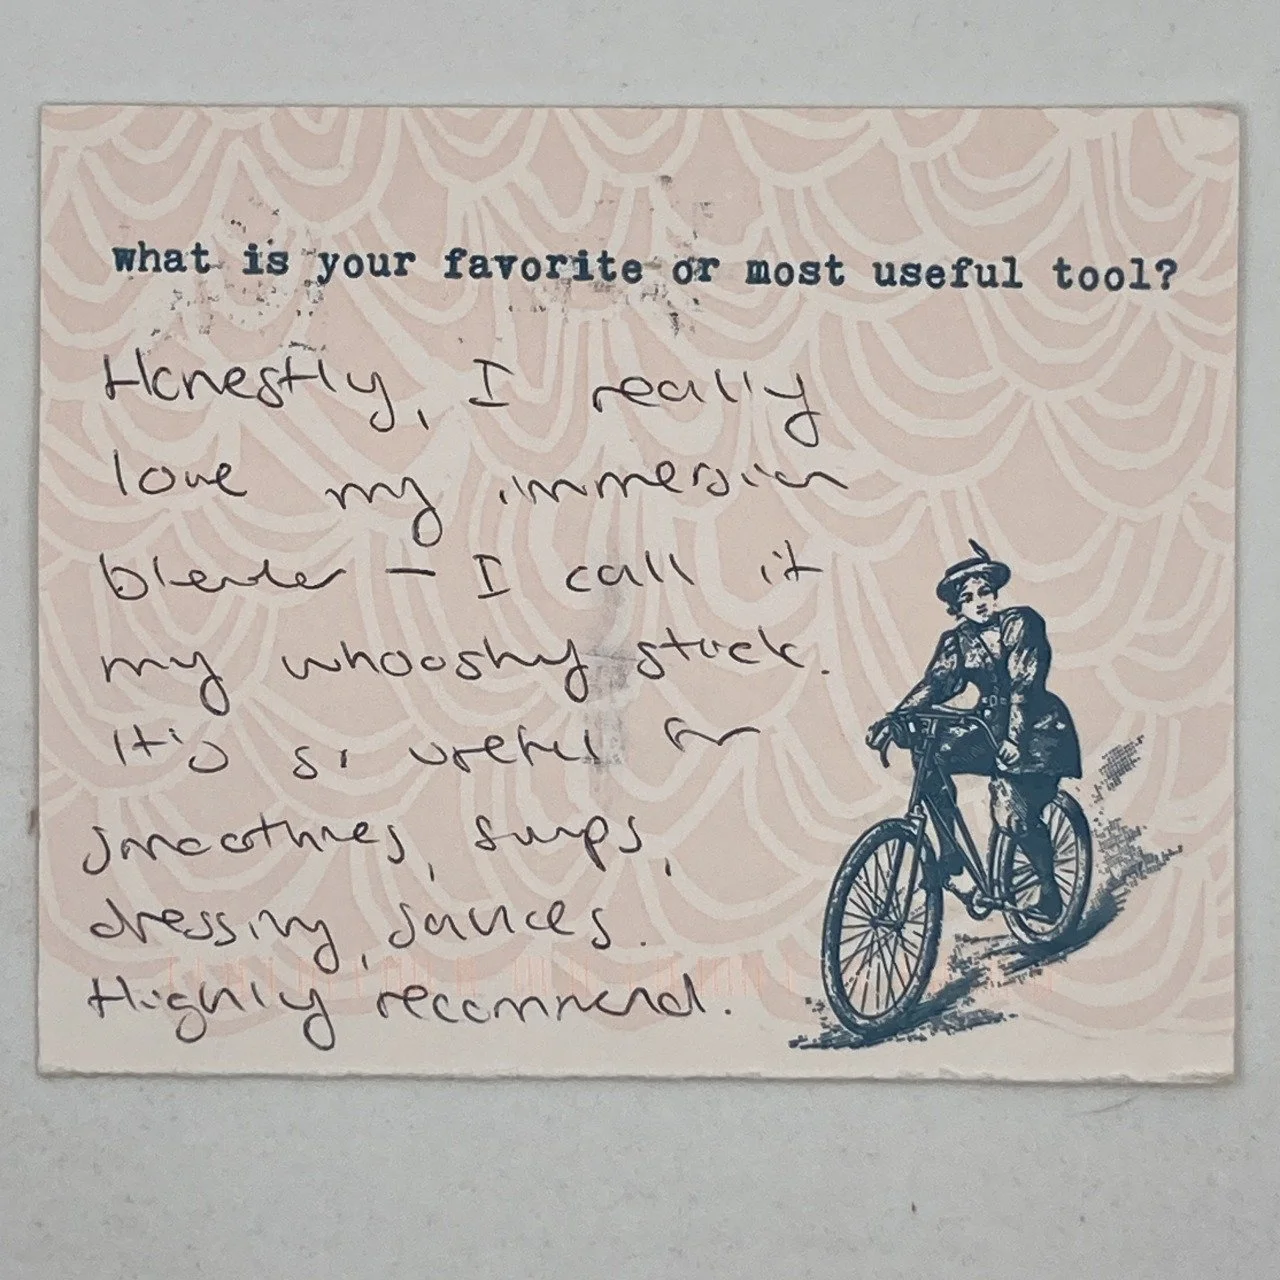 what is your favorite or most useful tool?
Honestly, I really
love my immersion
blender – I call it
my whooshy stick.
It's so useful for
smoothies, soups,
dressing, sauces.
Highly recommend.